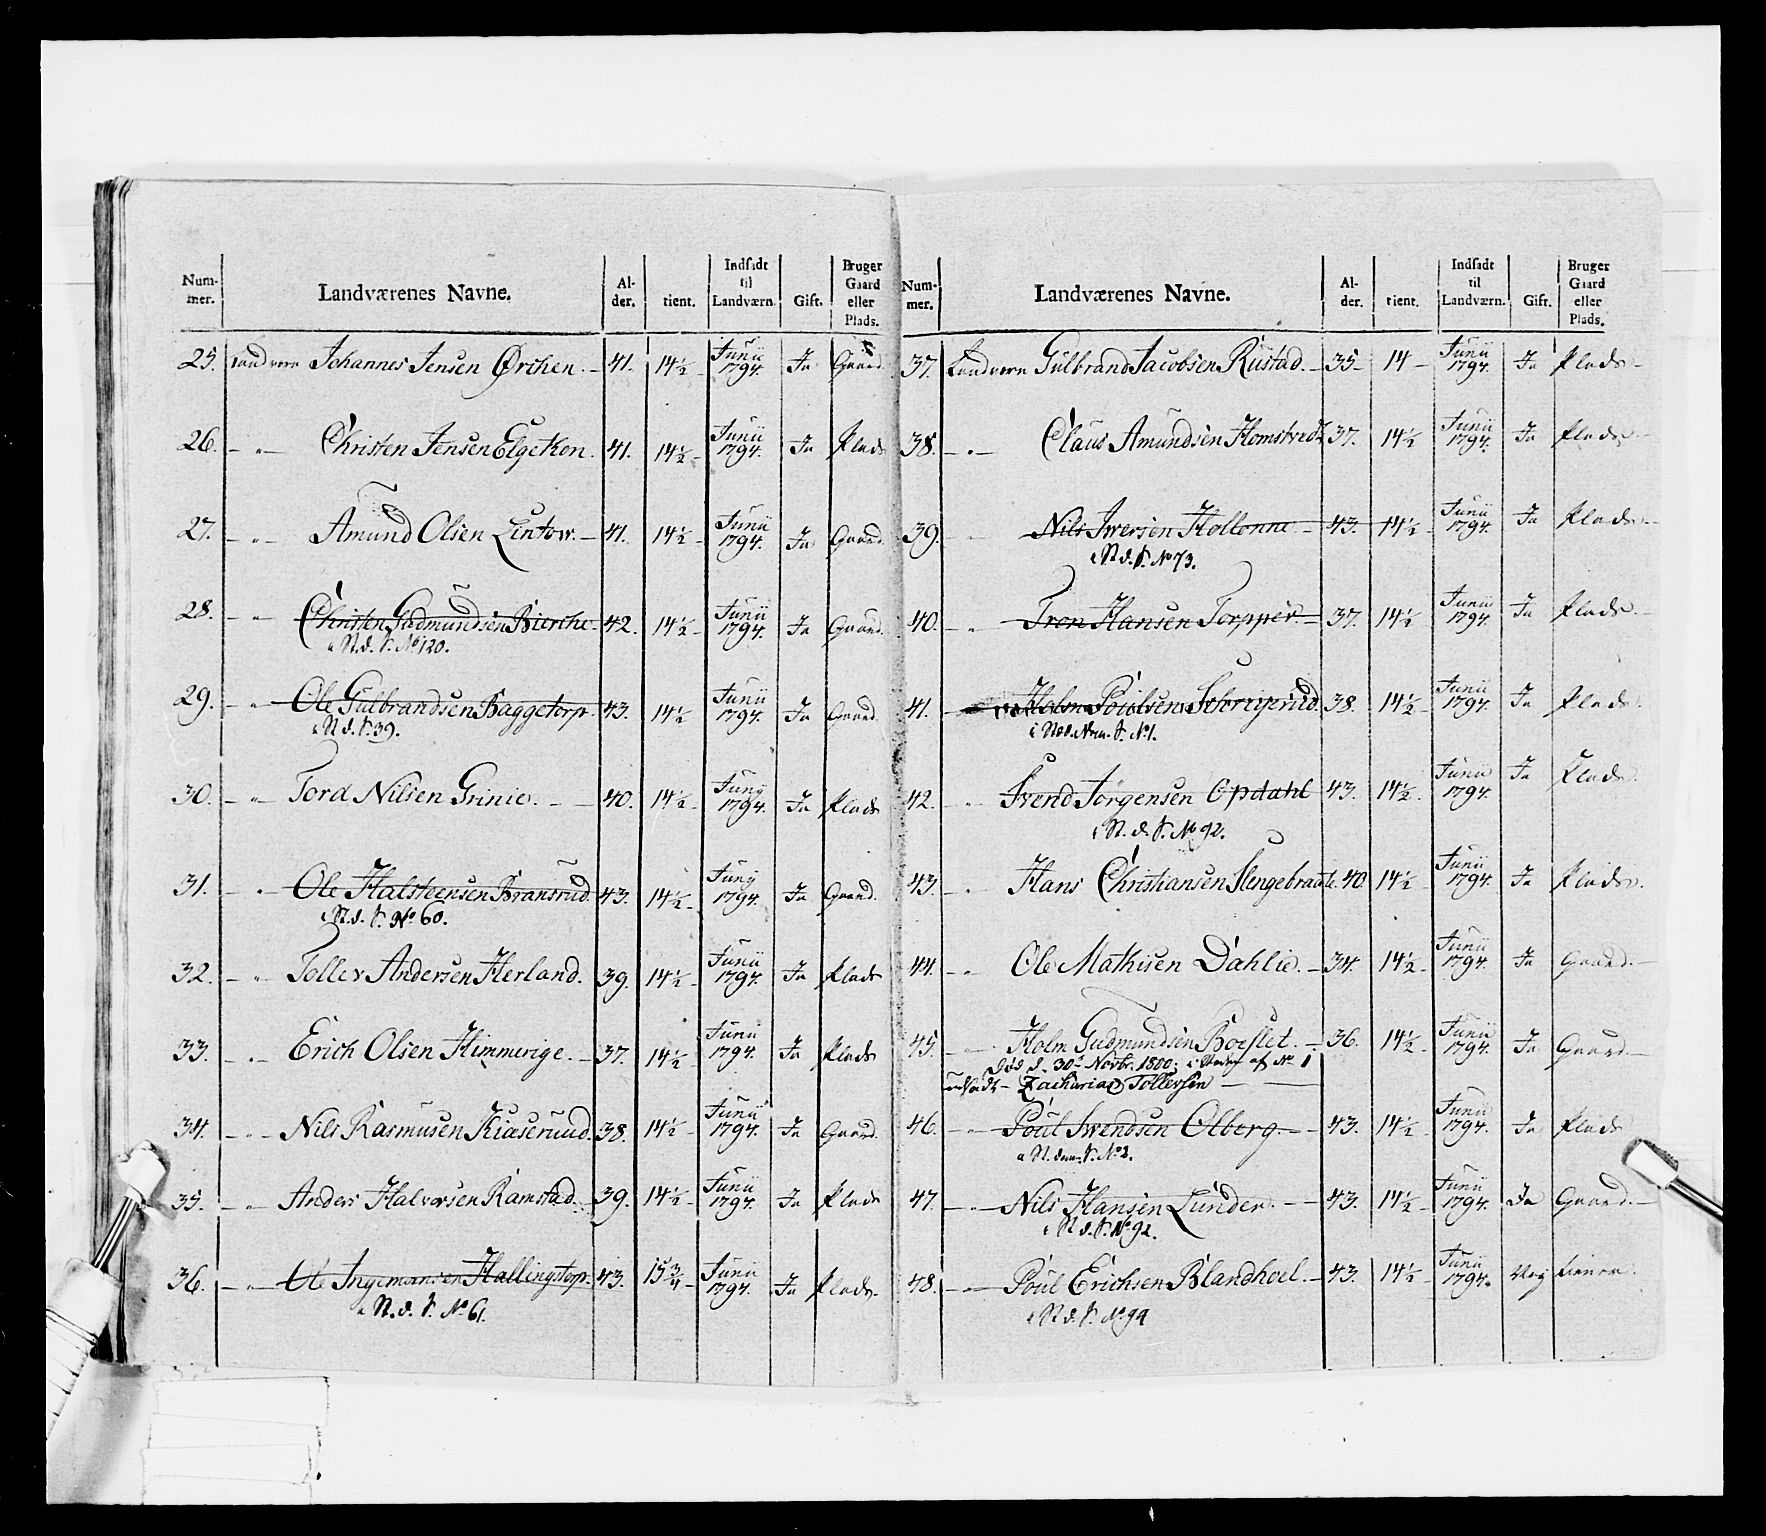 Num-mer. Landværenes Navne. Al-der. tient. Indsadt til Landværn. Gift. Bruger Gaard eller Plads.
25. Landvern Johannes Jensen Ørchen. 41. 14½ Junii 1794. Ja Gaard.
26. — " — Christen Jensen Elgetkon. 41. 14½ Junii 1794. Ja Plads
27. — " — Amund Olsen Lintow. 41. 14½ Junii 1794. Ja Gaard.
28. — " — Christen Gudmundsen Bierche 42. 14½ Junii 1794. Ja Gaard.
i St. d. S. No 120.
29. — " — Ole Gulbrandsen Baggetorp. 43. 14½ Junii 1794. Ja Gaard.
i St. d. S. 39.
30. — " — Tord Nilsen Grinie. 40. 14½ Junij 1794. Ja Plads
31. — " — Ole Halsteensen Bransrud. 43. 14½ Junij 1794. Ja Gaard.
i St. d. S. No 60.
32. — " — Tollev Andersen Herland. 39. 14½ Junii 1794. Ja Plads
33. — " — Erich Olsen Himmerige. 37. 14½ Junii 1794. Ja Plads
34. — " — Nils Rasmusen Kiaserund. 38. 14½ Junii 1794. Ja Gaard.
35. — " — Anders Halvorsen Ramstad. 39. 14½ Junii 1794. Ja Plads
36. — " — Ole Ingemansen Hallingstorp. 43. 15¾ Junii 1794. Ja Plads.
i St. d. S. No 61.
Num-mer. Landværenes Navne. Al-der. tient. Indsadt til Landværn. Gift. Bruger Gaard eller Plads.
37. Landvern Gulbrand Jacobsen Rustad. 35 14 Junii 1794. Ja Plads.
38. — " — Claus Amundsen Homstvedt 37. 14½ Junii 1794. Ja Plads.
39. " Nils Iversen Hollonne 43. 14½ Junii 1794. Ja Plads.
i St. d. S. No 73.
40. — " Tron Hansen Torpper 37. 14½ Junii 1794. Ja Plads.
41. — Holm Poulsen 38. 14½ Junii 1794. Ja Plads.
S. No 1.
42. — " Svend Jørgensen Opdahl 43. 14½ Junii 1794. Ja Plads.
i St. d. S. No 92.
43. — " Hans Christiansen Slengebraate. 40 14½ Junii 1794. Ja Plads.
44. — " — Ole Mathisen Dahlie. 34. 14½ Junii 1794. Ja Gaard.
45. — " — Holm Gudmundsen Borslet. 36. 14½ Junii 1794. Ja Gaard.
Død d. 30te Novbr. 1800; i Steden af No 1
indsadt — Zacharias Tollevsen
46. — " — Poul Svendsen Olberg. 43. 14½ Junii 1794. Ja Plads
S. No 2.
47. — " — Nils Hansen Lunder. 43. 14½ Junii 1794. Ja Gaard.
i St. d. S. No 92.
48. — " — Poul Erichsen Blandhoel. 43. 14½ Junii 1794. Nej
i St. d. S. No 94